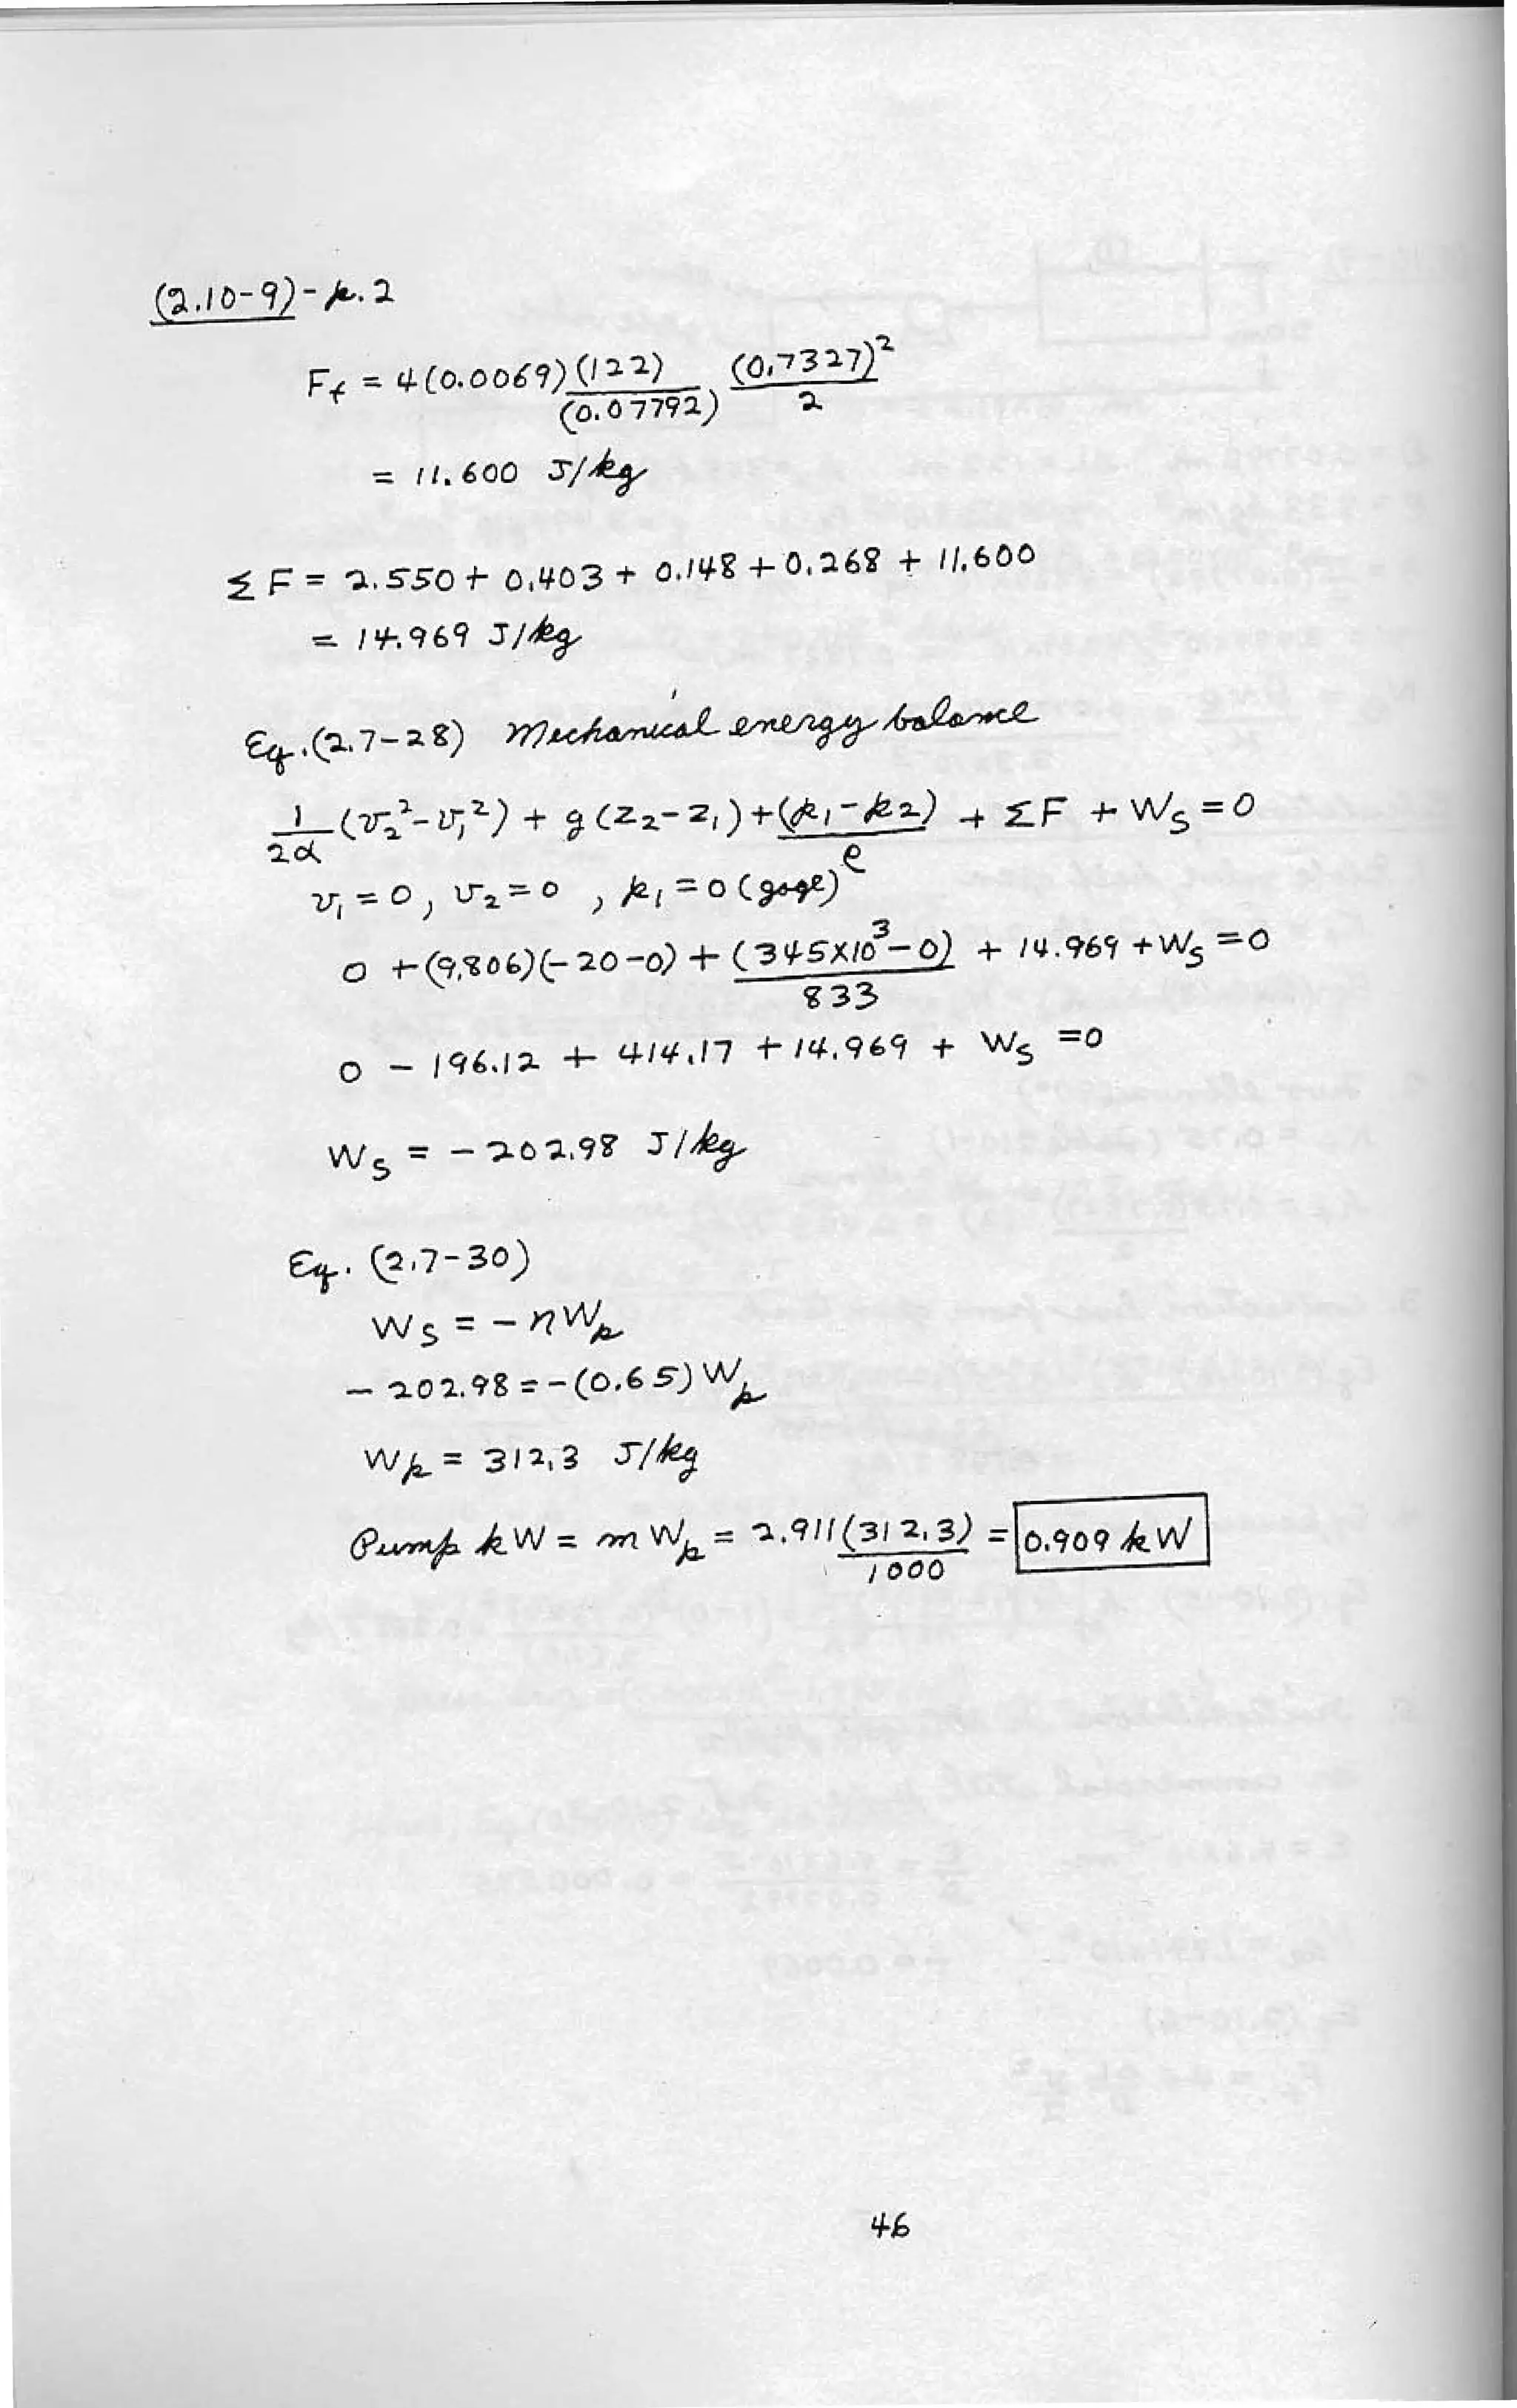 (2.10-9)-p. 2
F_f = 4(0.0069) (122)/(0.07792) (0.7327)²/2
= 11.600 J/kg
ΣF = 2.550 + 0.403 + 0.148 + 0.268 + 11.600
= 14.969 J/kg
Eq. (2.7-28) Mechanical energy balance
1/2α (v₂² - v₁²) + g(z₂ - z₁) + (p₁ - p₂)/ρ + ΣF + W_S = 0
v₁ = 0, v₂ = 0, p₁ = 0 (gage)
0 + (9.806)(-20-0) + (345×10³ - 0)/833 + 14.969 + W_S = 0
0 - 196.12 + 414.17 + 14.969 + W_S = 0
W_S = - 202.98 J/kg
Eq. (2.7-30)
W_S = - ηW_p
- 202.98 = -(0.65) W_p
W_p = 312.3 J/kg
Pump kW = m W_p = 2.911(312.3)/1000 = 0.909 kW
46